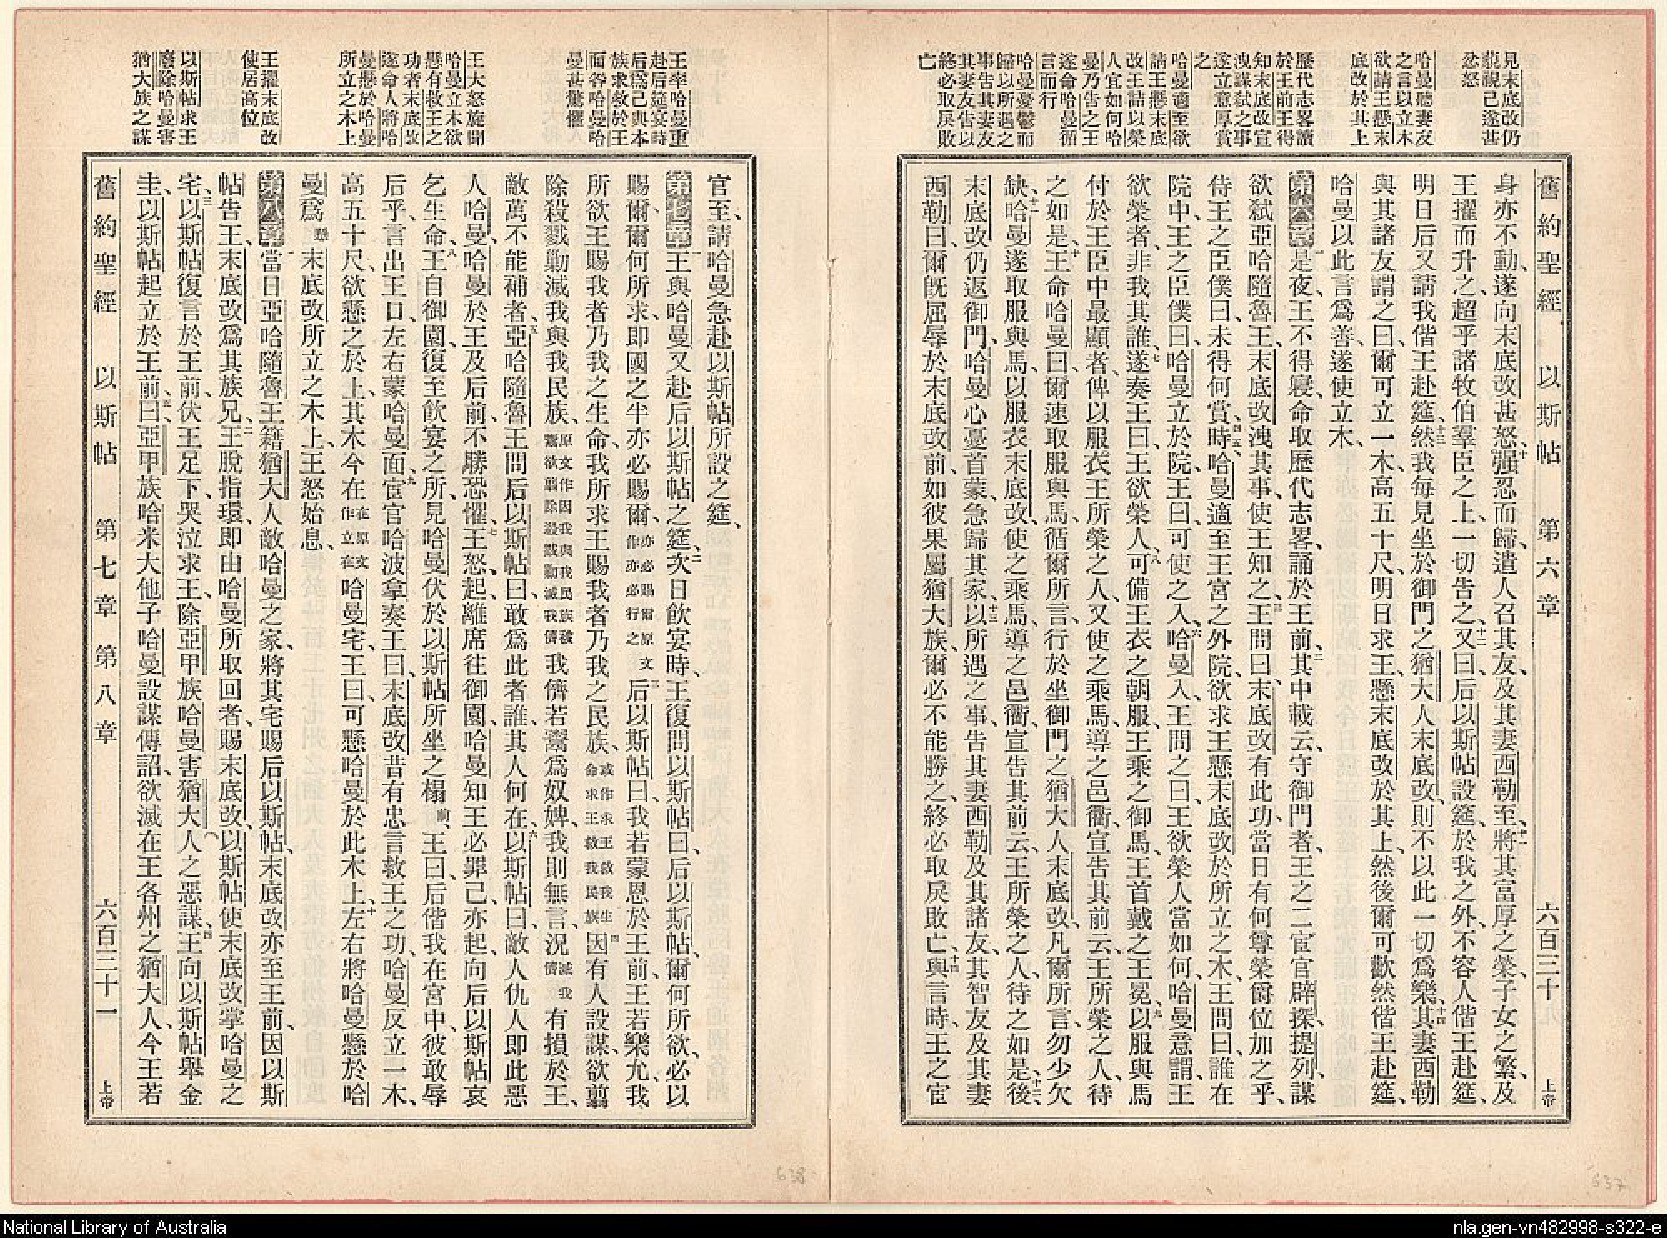 見末底改仍
藐視己遂甚
忿怒
哈曼聽妻友
之言以立木
欲請王懸末
底改於其上
歷代志畧讀
於王前王得
知末底改宣
洩謀弑之事
遂立意厚賞
之
哈曼適至欲
請王懸末底
改王詰以榮
人宜如何哈
曼乃告之王
遂命哈曼循
言而行
哈曼憂鬱而
歸以所遇之
事告其妻友
其妻友告以
終必取戾敗
亡
舊約聖經 以斯帖 第六章 六百三十 上帝
身亦不動、遂向末底改甚怒、十强忍而歸、遣人召其友、及其妻西勒至、十一將其富厚之榮、子女之繁、及
王擢而升之、超乎諸牧伯羣臣之上、一切告之、十二又曰、后以斯帖設筵、於我之外、不容人偕王赴筵、
明日后又請我偕王赴筵、十三然我每見坐於御門之猶大人末底改、則不以此一切爲樂、十四其妻西勒
與其諸友謂之曰、爾可立一木、高五十尺、明日求王懸末底改於其上、然後爾可歡然偕王赴筵、
哈曼以此言爲善、遂使立木、
第六章一是夜王不得寢、命取歷代志畧、誦於王前、二其中載云、守御門者、王之二宦官辟探、提列、謀
欲弑亞哈隨魯王、末底改洩其事、使王知之、三王問曰、末底改有此功、當日有何尊榮爵位加之乎、
侍王之臣僕曰、未得何賞、四五時哈曼適至王宮之外院、欲求王懸末底改於所立之木、王問曰、誰在
院中、王之臣僕曰、哈曼立於院、王曰、可使之入、六哈曼入、王問之曰、王欲榮人當如何、哈曼意謂、王
欲榮者、非我其誰、七遂奏王曰、王欲榮人、八可備王衣之朝服、王乘之御馬、王首戴之王冕、九以服與馬
付於王臣中最顯者、俾以服衣王所榮之人、又使之乘馬、導之邑衢、宣告其前云、王所榮之人、待
之如是、十王命哈曼曰、爾速取服與馬、循爾所言、行於坐御門之猶大人末底改、凡爾所言、勿少欠
缺、十一哈曼遂取服與馬、以服衣末底改、使之乘馬、導之邑衢、宣告其前云、王所榮之人、待之如是、十二後
末底改仍返御門、哈曼心憂首蒙、急歸其家、十三以所遇之事、告其妻西勒、及其諸友、其智友及其妻
西勒曰、爾旣屈辱於末底改前、如彼果屬猶大族、爾必不能勝之、終必取戾敗亡、十四與言時、王之宦
王率哈曼重
赴后筵宴時
后爲己與本
族求救於王
面斥哈曼哈
曼甚驚懼
王大怒旋聞
哈曼立木欲
懸有救王之
功者末底改
遂命人將哈
曼懸於哈曼
所立之木上
王擢末底改
使居高位
以斯帖求王
廢除哈曼害
猶大族之謀
官至、請哈曼急赴以斯帖所設之筵、
第七章一王與哈曼又赴后以斯帖之筵、二次日飲宴時、王復問以斯帖曰、后以斯帖、爾何所欲、必以
賜爾、爾何所求、卽國之半亦必賜爾、亦必賜爾原文作亦必行之三后以斯帖曰、我若蒙恩於王前、王若樂允、我
所欲王賜我者、乃我之生命、我所求王賜我者、乃我之民族、或作求王救我生命求王救我民族四因有人設謀、欲翦
除殺戮勦滅我與我民族、原文作因我與我民族被鬻欲翦除殺戮勦滅我儕我儕若鬻爲奴婢、我則無言、況滅我儕有損於王、
敵萬不能補者、五亞哈隨魯王問后以斯帖曰、敢爲此者誰、其人何在、六以斯帖曰、敵人仇人、卽此惡
人哈曼、哈曼於王及后前、不勝恐懼、七王怒起、離席往御園、哈曼知王必罪己、亦起、向后以斯帖哀
乞生命、八王自御園、復至飲宴之所、見哈曼伏於以斯帖所坐之榻前、王曰、后偕我在宮中、彼敢辱
后乎、言出王口、左右蒙哈曼面、九宦官哈波拿奏王曰、末底改昔有忠言救王之功、哈曼反立一木、
高五十尺、欲懸之於上、其木今在在原文作立在哈曼宅、王曰、可懸哈曼於此木上、十左右將哈曼懸於哈
曼爲懸末底改所立之木上、王怒始息、
第八章一當日亞哈隨魯王、籍猶大人敵哈曼之家、將其宅賜后以斯帖、末底改亦至王前、因以斯
帖告王、末底改爲其族兄、二王脫指環、卽由哈曼所取回者、賜末底改、以斯帖使末底改掌哈曼之
宅、三以斯帖復言於王前、伏王足下、哭泣求王、除亞甲族哈曼害猶大人之惡謀、四王向以斯帖舉金
圭、以斯帖起立於王前、五曰、亞甲族哈米大他子哈曼設謀傳詔、欲滅在王各州之猶大人、今王若
舊約聖經 以斯帖 第七章 第八章 六百三十一 上帝
638
637
National Library of Australia
nla.gen-vn482998-s322-e